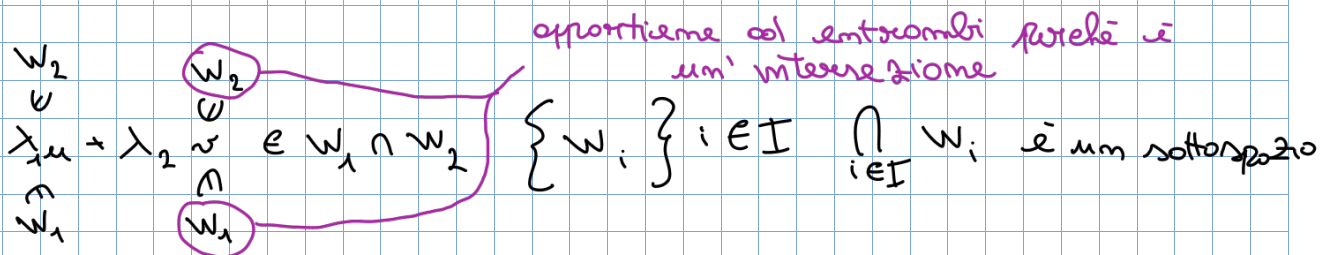 appartiene ad entrambi perchè è
un' intersezione
W₂ W₂
⋓ ⋓
λ₁u + λ₂ v ∈ W₁ ∩ W₂ { W_i } i ∈ I ⋂_{i∈I} W_i è un sottospazio
⋒ ⋒
W₁ W₁